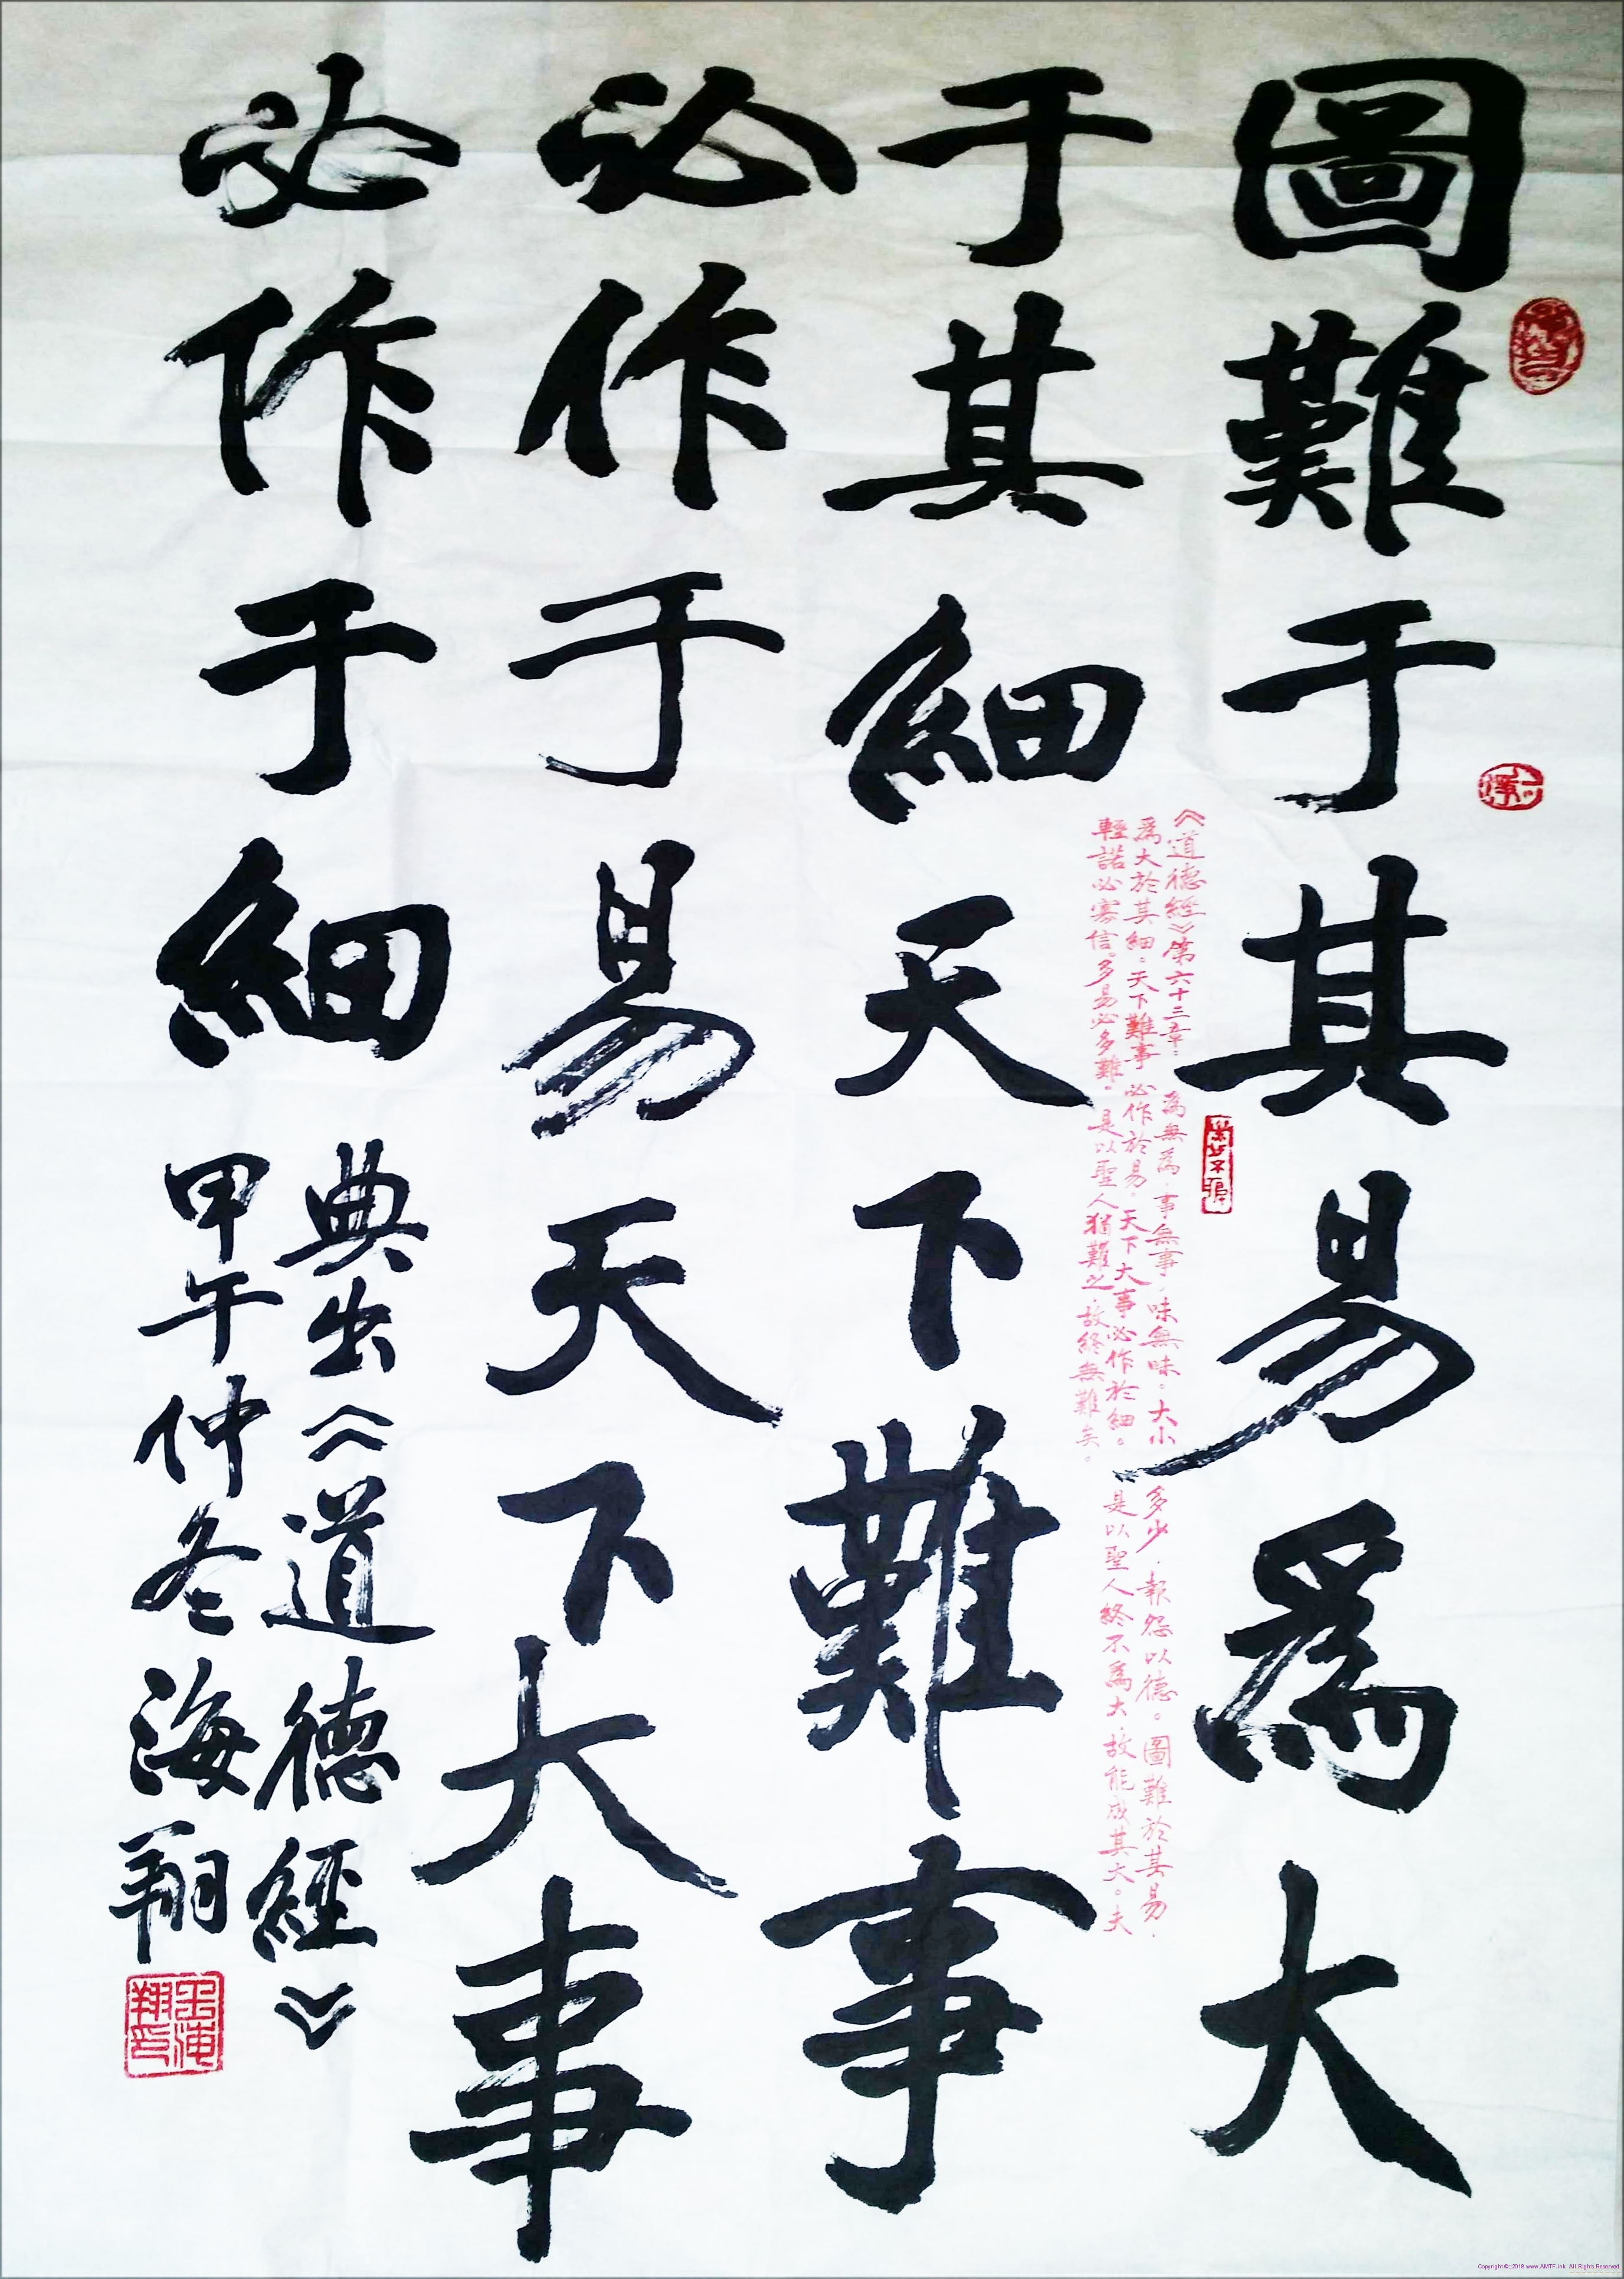 圖難于其易爲大
《道德經》第六十三章：爲無爲，事無事，味無味。大小多少，報怨以德。圖難於其易，
爲大於其細。天下難事必作於易。天下大事必作於細。是以聖人終不爲大，故能成其大。夫
輕諾必寡信。多易必多難。是以聖人猶難之，故終無難矣。
于其細天下難事
必作于易天下大事
必作于細
典出《道德經》
甲午仲冬海翔
王海翔印
www.AMTF.ink All.Rights.Reserved.